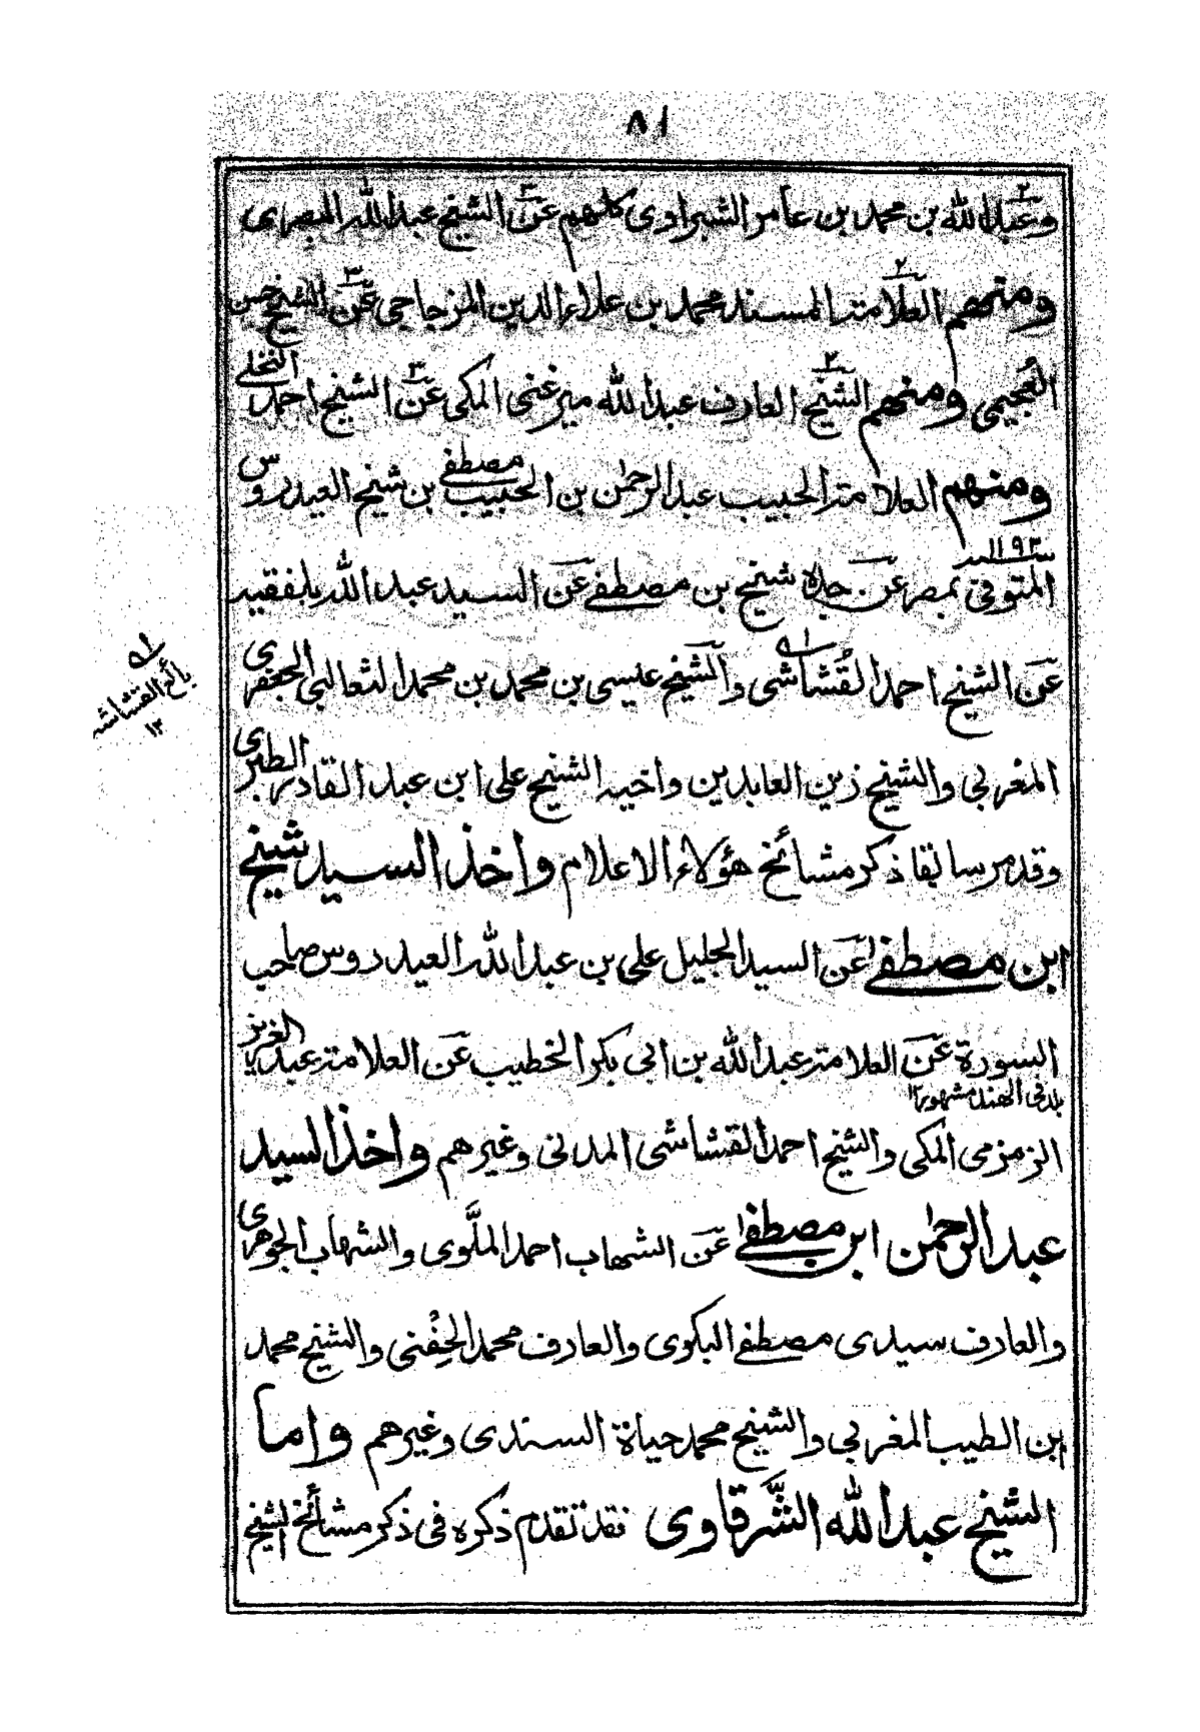 ٨١
وعبد الله بن محمد بن عامر الشبراوي كلهم عن الشيخ عبد الله البصري
ومنهم العلامة المسند محمد بن علاء الدين المزجاجي عن الشيخ حسن
العُجيمي ومنهم الشيخ العارف عبد الله ميرغني المكي عن الشيخ احمد النخلي
ومنهم العلامة الحبيب عبد الرحمٰن بن الحبيب مصطفى بن شيخ العيدروس
المتوفى بمصر عن جده شيخ بن مصطفى عن السيد عبد الله بلفقيه
عن الشيخ احمد القُشاشي والشيخ عيسى بن محمد بن محمد الثعالبي الجعفري
المغربي والشيخ زين العابدين واخيه الشيخ علي ابن عبد القادر الطبري
وقد مر سابقا ذكر مشائخ هؤلاء الاعلام واخذ السيد شيخ
ابن مصطفى عن السيد الجليل علي بن عبد الله العيدروس صاحب
السورة عن العلامة عبد الله بن ابي بكر الخطيب عن العلامة عبد العزيز
بلد في الهند مشهور ١٢
الزمزمي المكي والشيخ احمد القشاشي المدني وغيرهم واخذ السيد
عبد الرحمٰن ابن مصطفى عن الشهاب احمد الملَّوي والشهاب الجوهري
والعارف سيدي مصطفى البكري والعارف محمد الحِفْني والشيخ محمد
ابن الطيب المغربي والشيخ محمد حياة السندي وغيرهم واما
الشيخ عبد الله الشَّرقاوي فقد تقدم ذكره في ذكر مشائخ الشيخ
القشاشي
١٢